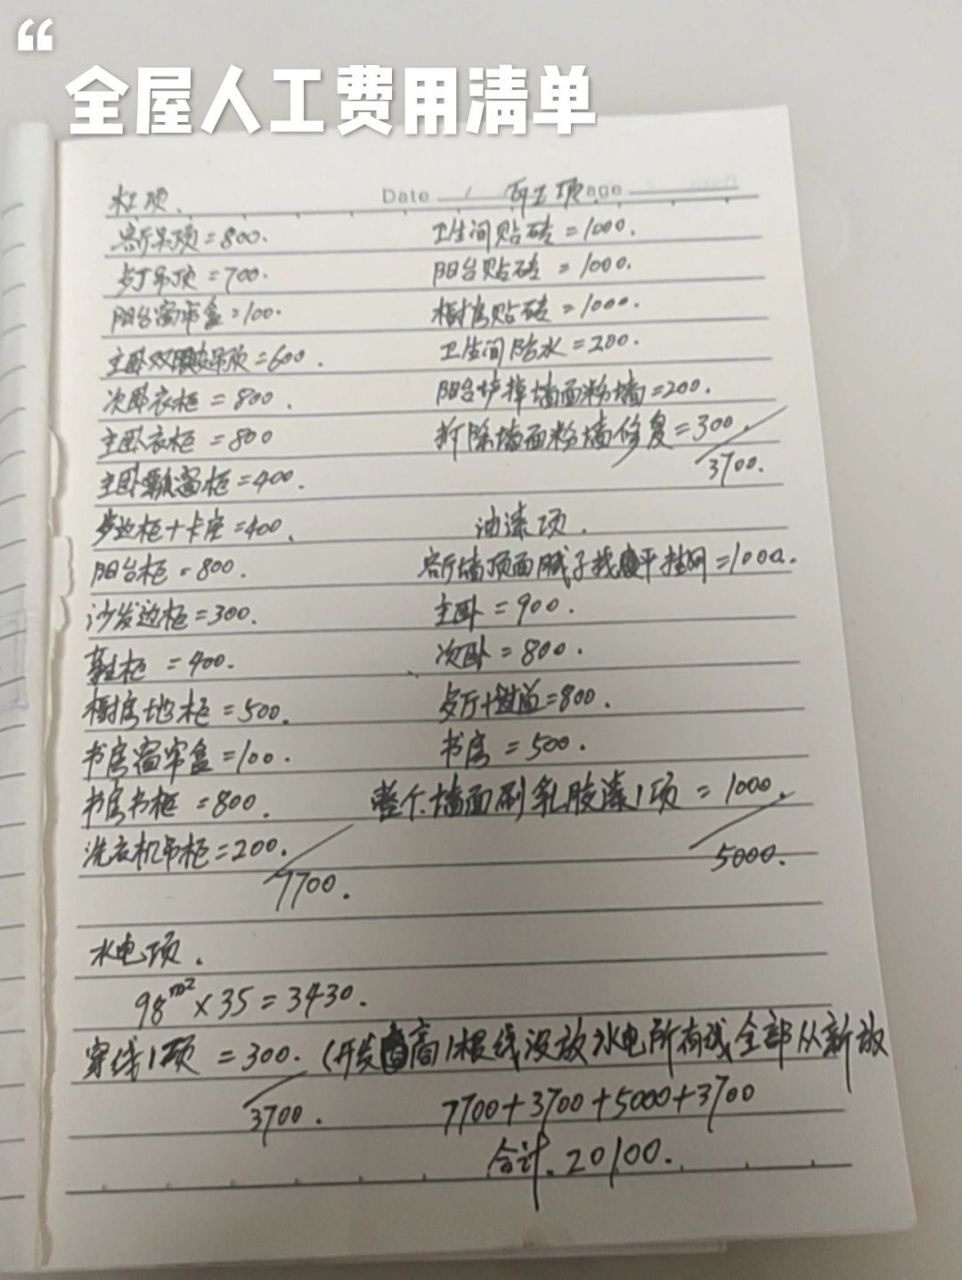 全屋人工费用清单
Date
木工项.
客厅吊顶=800.
歺厅吊顶=700.
阳台窗帘盒=100.
主卧双眼皮吊顶=600.
次卧衣柜=800.
主卧衣柜=800
主卧飘窗柜=400.
歺边柜+卡座=400.
阳台柜=800.
沙发边柜=300.
鞋柜=400.
橱房地柜=500.
书房窗帘盒=100.
书房书柜=800.
洗衣机吊柜=200.
7700.
瓦工项
卫生间贴砖=1000.
阳台贴砖=1000.
橱房贴砖=1000.
卫生间防水=200.
阳台铲掉墙面粉墙=200.
拆除墙面粉墙修复=300.
3700.
油漆项.
客厅墙顶面腻子找平挂网=1000.
主卧=900.
次卧=800.
歺厅+过道=800.
书房=500.
整个墙面刷乳胶漆1项=1000.
5000.
水电项.
98m²×35=3430.
穿线1项=300.(开发商1根线没放水电所有线全部从新放
3700.
7700+3700+5000+3700
合计.20100.